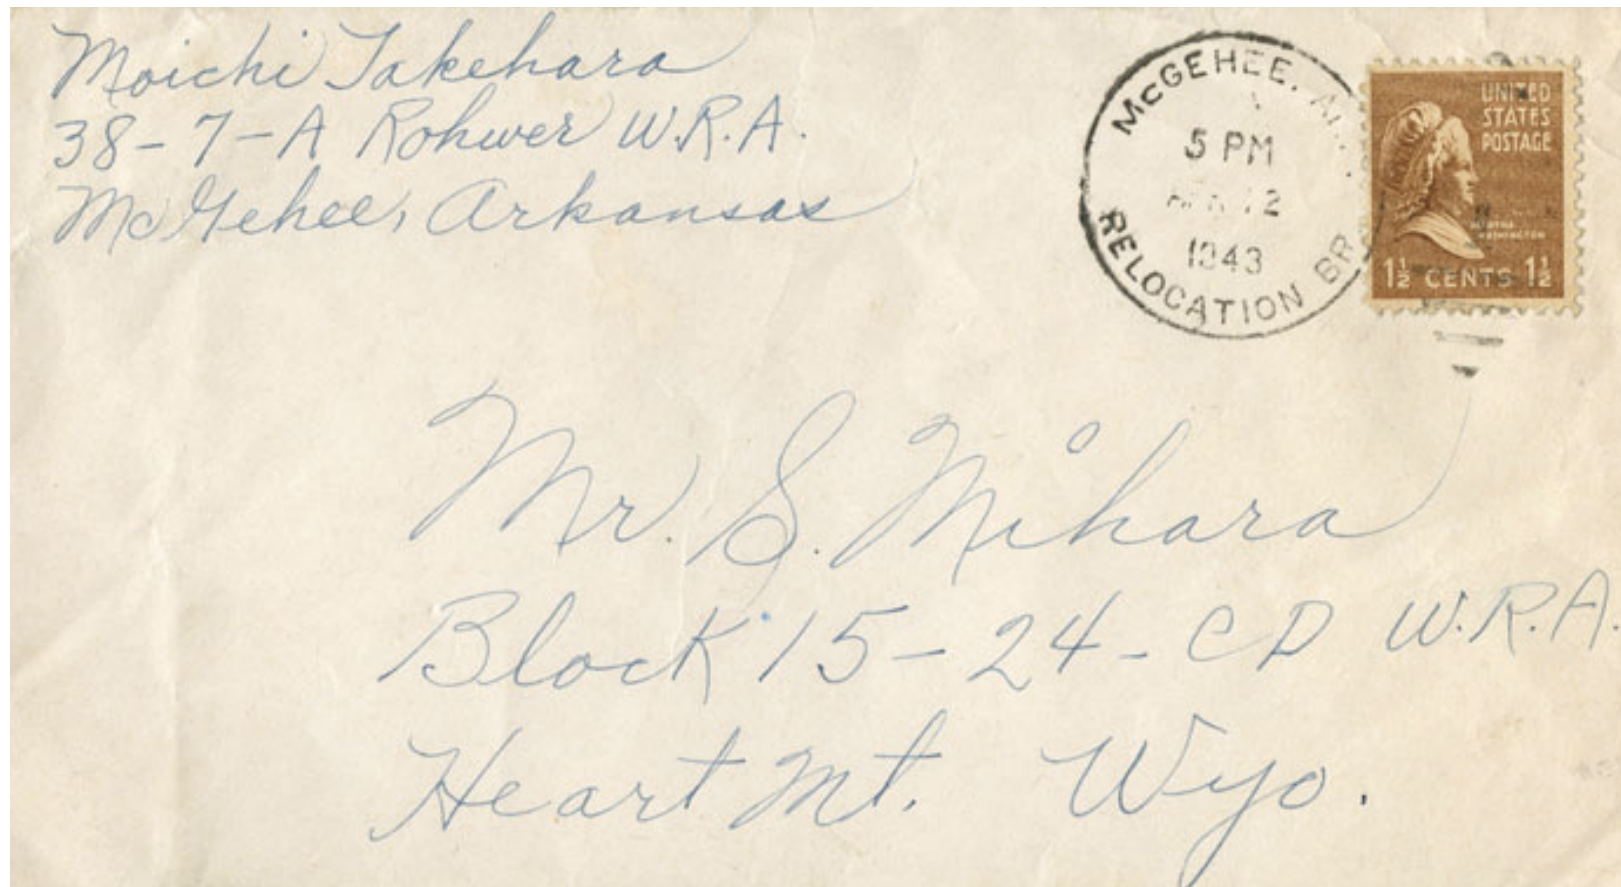 Moichi Takehara
38-7-A Rohwer W.R.A.
McGehee, Arkansas
McGEHEE,
5 PM
12
1943
RELOCATION BR
UNITED
STATES
POSTAGE
MARTHA
WASHINGTON
1½ CENTS 1½
Mr. S. Mihara
Block 15-24-CD W.R.A.
Heart Mt. Wyo.